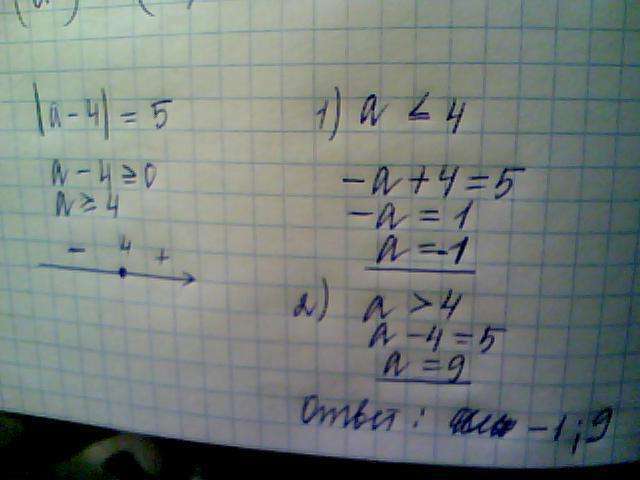 |a - 4| = 5
a - 4 ≥ 0
a ≥ 4
- 4 +
1) a < 4
-a + 4 = 5
-a = 1
a = -1
2) a > 4
a - 4 = 5
a = 9
Ответ: -1; 9